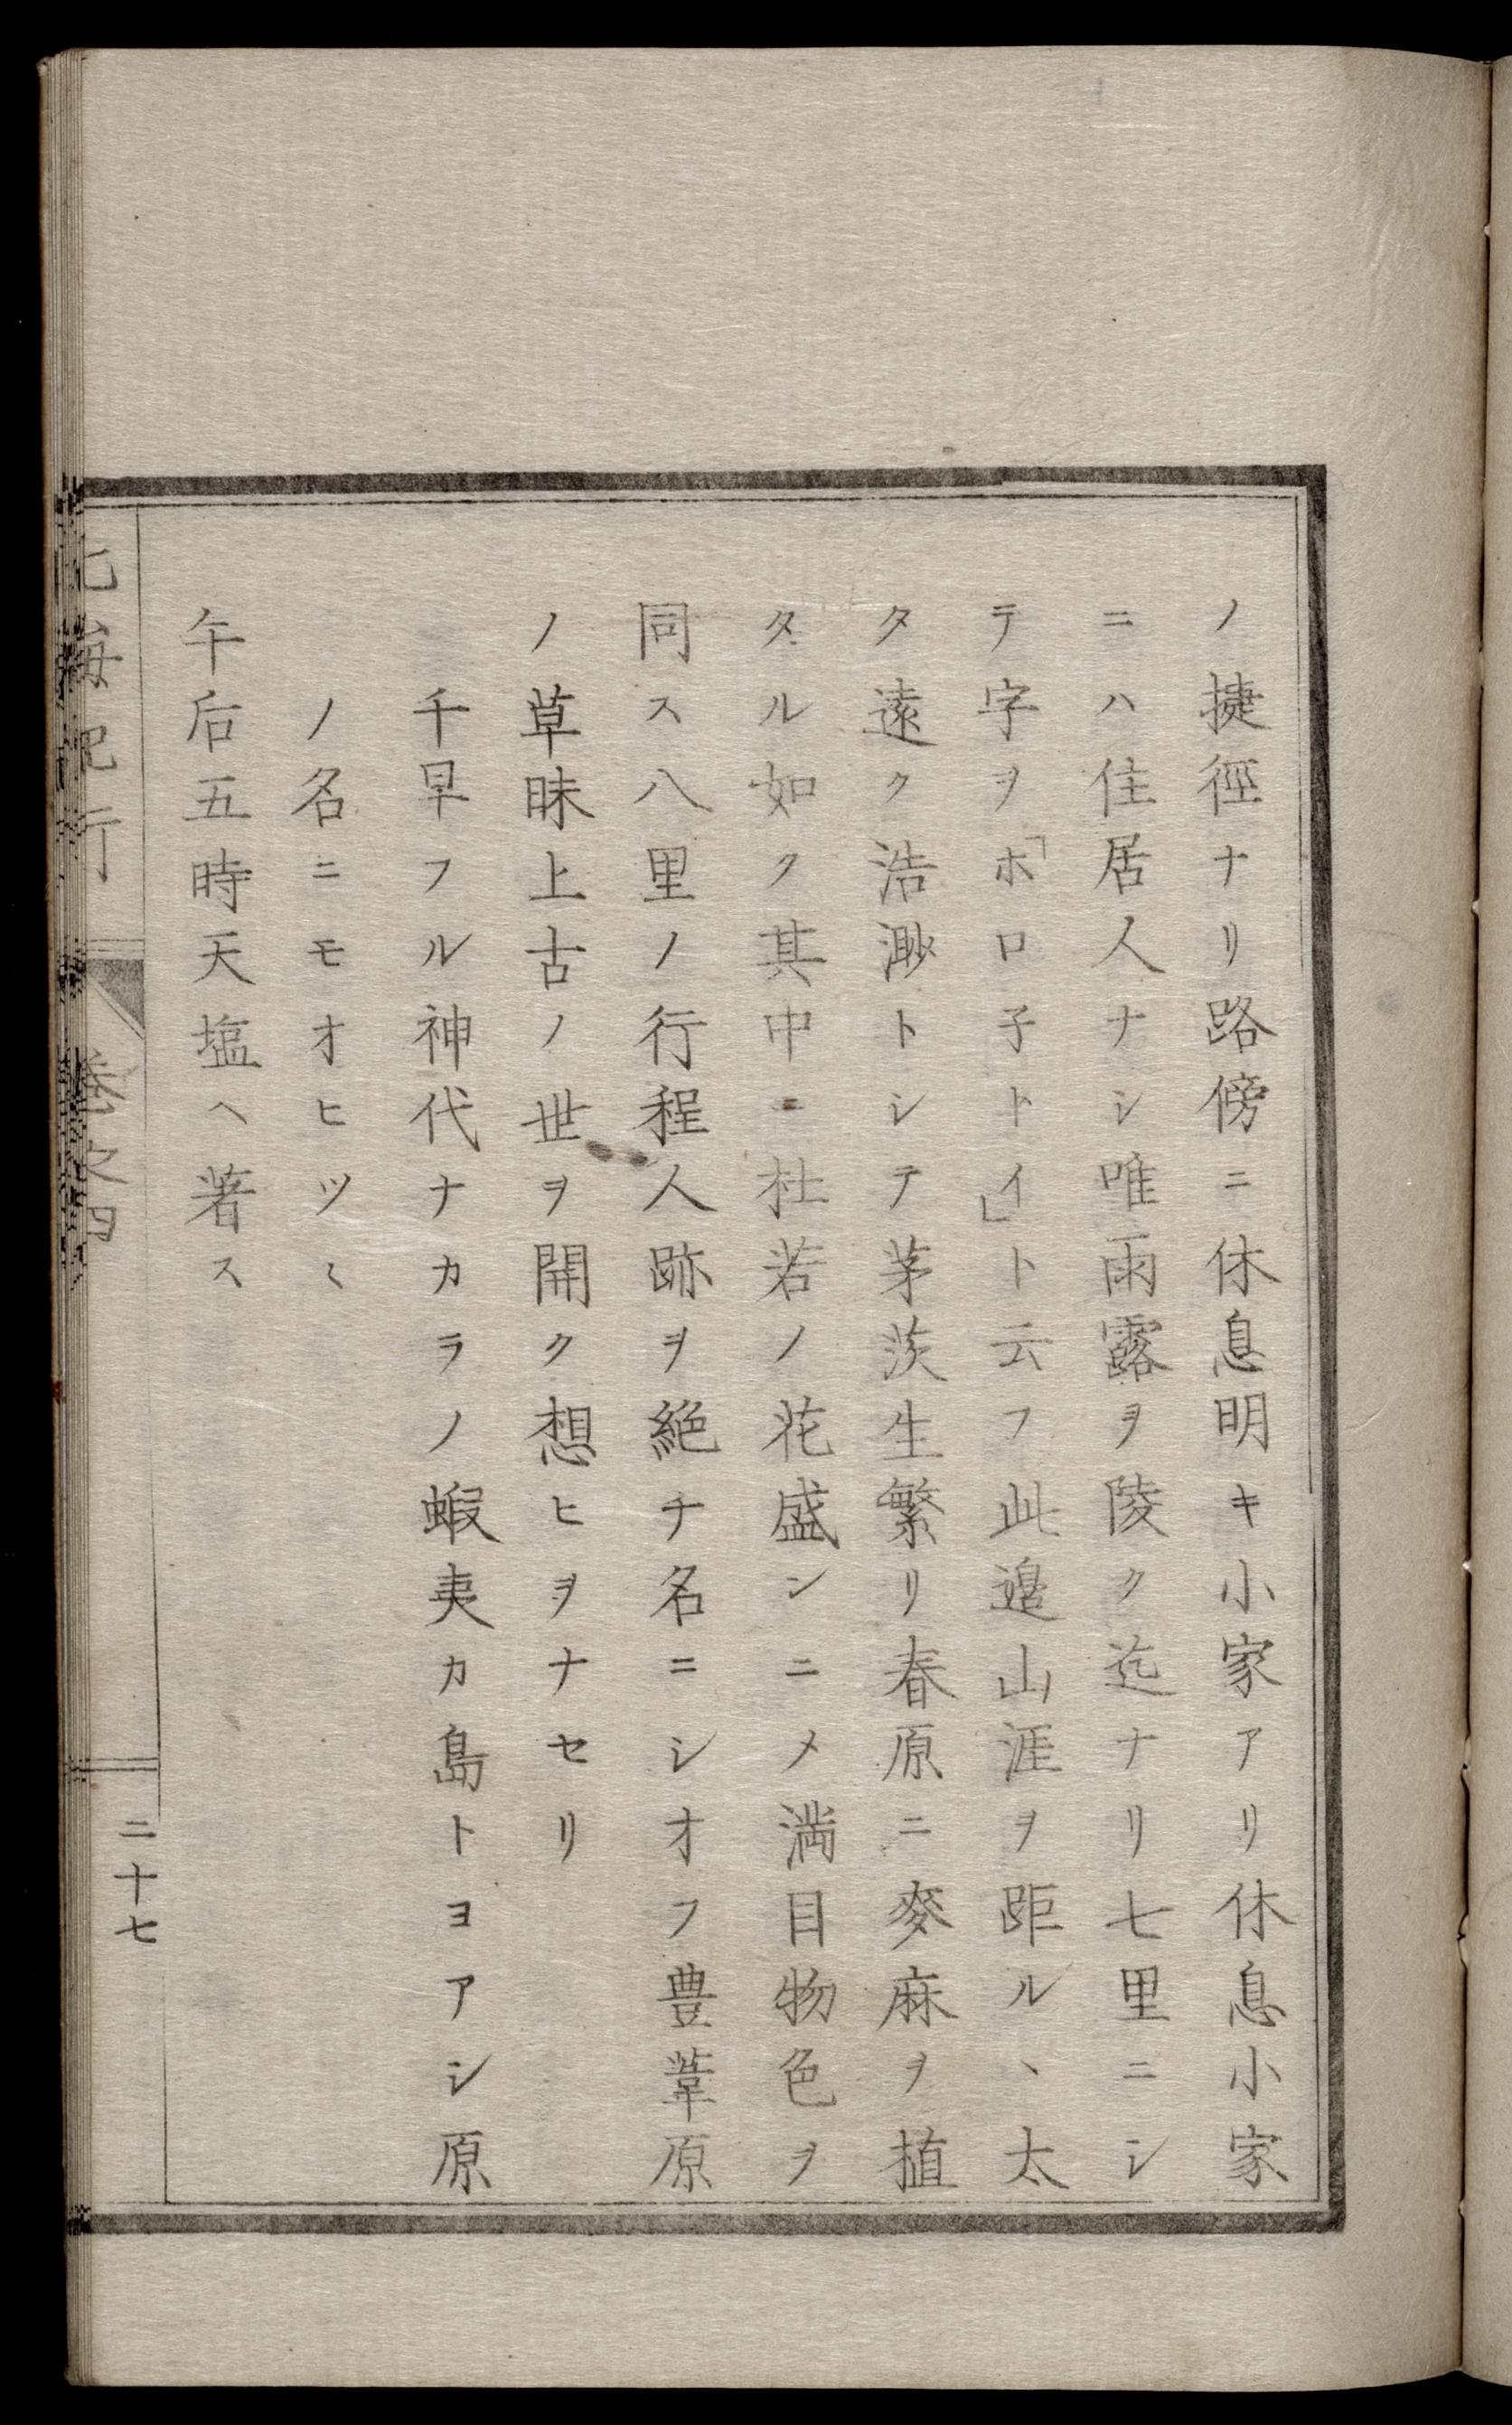 ノ捷徑ナリ路傍ニ休息明キ小家アリ休息小家
ニハ住居人ナシ唯雨露ヲ陵ク迄ナリ七里ニシ
テ字ヲ「ホロ子トイ」ト云フ此邉山涯ヲ距ルヽ太
タ遠ク浩渺トシテ茅茨生繁リ春原ニ麥麻ヲ植
タル如ク其中ニ杜若ノ花盛ンニメ満目物色ヲ
同ス八里ノ行程人跡ヲ絶チ名ニシオフ豊葦原
ノ草昧上古ノ世ヲ開ク想ヒヲナセリ
千早フル神代ナカラノ蝦夷カ島トヨアシ原
ノ名ニモオヒツヽ
午后五時天塩ヘ著ス
北海紀行 巻之四 二十七